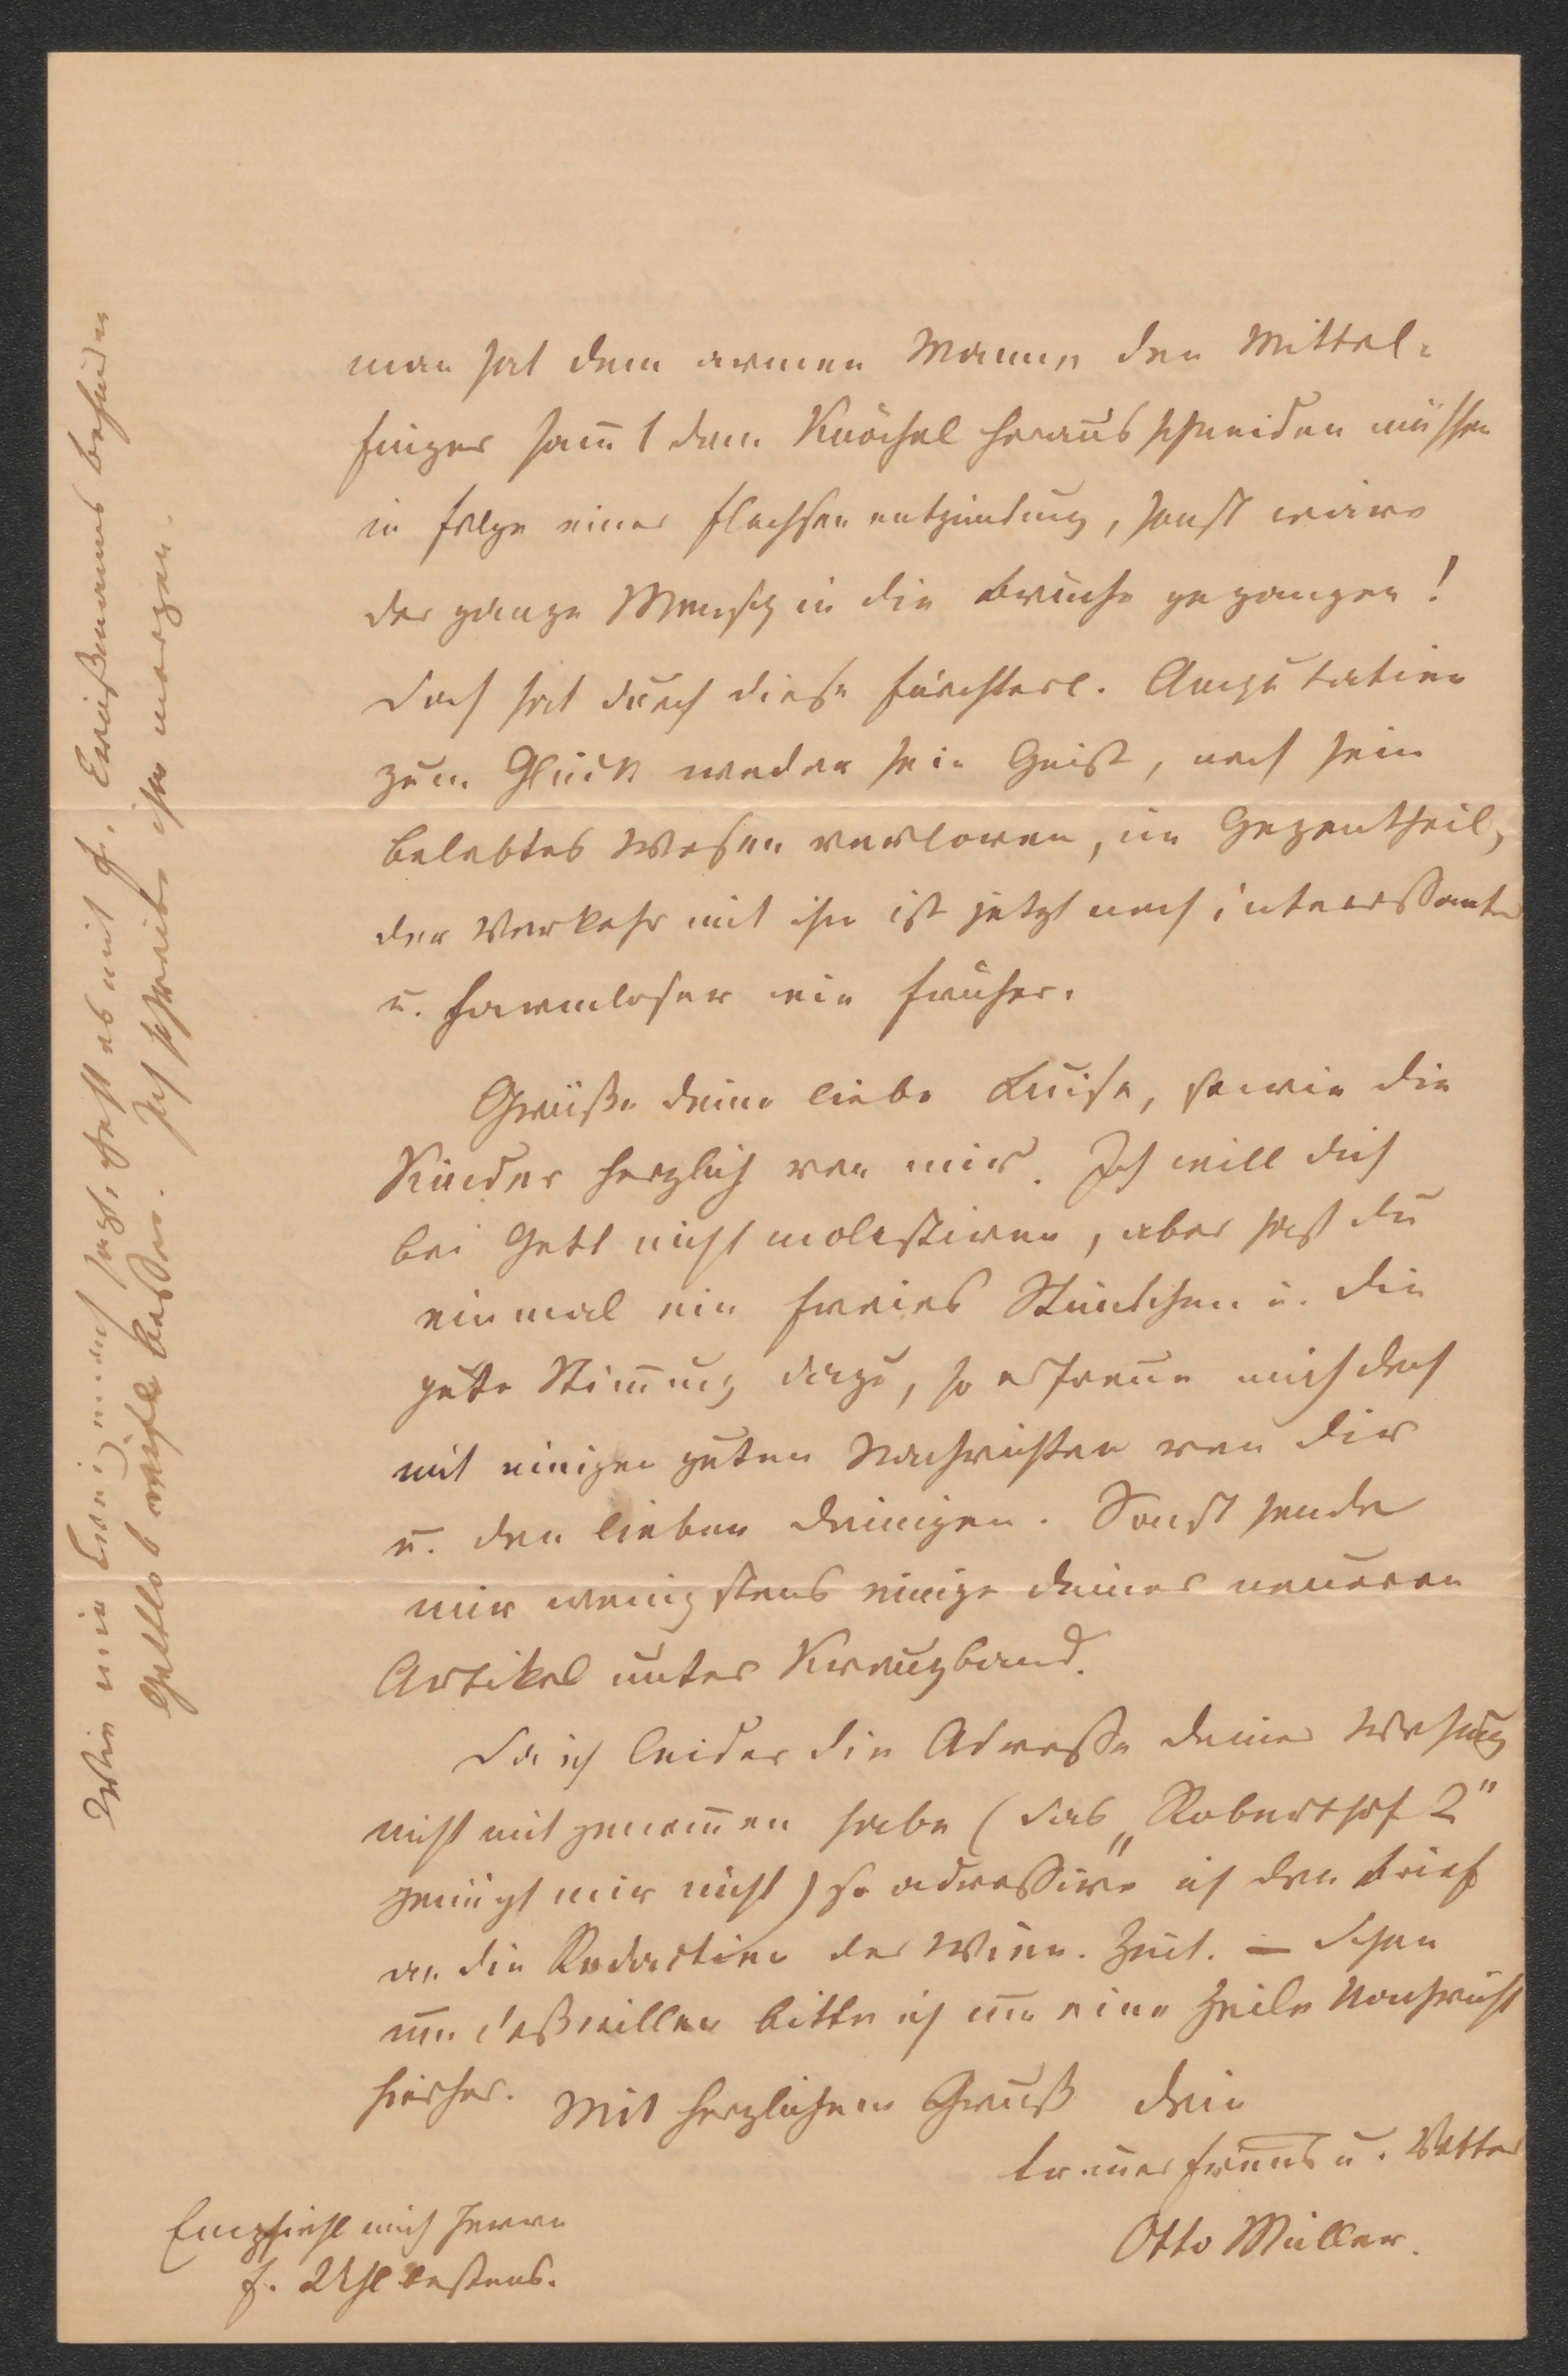 man hat dem armen Manne den Mittel-
finger sam̅t dem Knöchel herausschneiden müssen
in Folge einer Flechsenentzündung, sonst wäre
der ganze Mensch in die Brüche gegangen!
Doch hat durch diese fürchterl. Amputation
zum Glück weder sein Geist, noch sein
belebtes Wesen verloren, im Gegentheil,
der Verkehr mit ihm ist jetzt noch interessanter
u. harmloser wie früher.
Grüße deine liebe Luise, sowie die
Kinder herzlich von mir. Ich will dich
bei Gott nicht molestiren, aber hast du
einmal ein freies Stündchen u. die
gute Stim̅ung dazu, so erfreue mich doch
mit einigen guten Nachrichten von dir
u. den lieben Deinigen. Sonst sende
mir wenigstens einige deiner neueren
Artikel unter Kreuzband.
Da ich leider die Adresse deiner Wohnung
nicht mitgenom̅en habe (das „Roberthof 2"
genügt mir nicht) so adressire ich den Brief
an die Redaction der Wien. Zeit. – Schon
um deßwillen bitte ich um eine Zeile Nachricht
hierher. Mit herzlichem Gruß dein
treuer Freund u. Vetter
Otto Müller.
Empfiehl mich Herrn
F. Uhl bestens.
Wie mir sagt, geht es mit F. Befinden
Gottlob wieder besser. Ich schreibe ihr morgen.